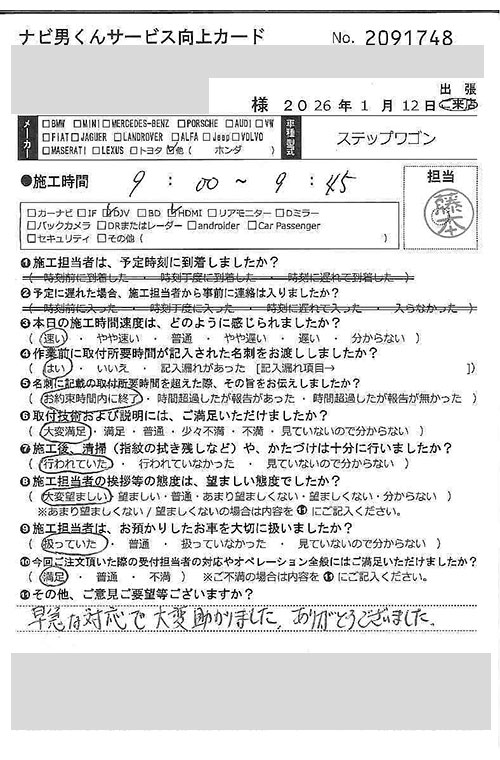 ナビ男くんサービス向上カード No. 2091748
様 2026年1月12日 出張・ご来店
メーカー □BMW □MINI □MERCEDES-BENZ □PORSCHE □AUDI □VW
□FIAT □JAGUER □LANDROVER □ALFA □Jeep □VOLVO
□MASERATI □LEXUS □トヨタ ☑他 ( ホンダ )
車種型式 ステップワゴン
●施工時間 9:00~9:45
担当 藤本
□カーナビ □IF ☑DV □BD ☑HDMI □リアモニター □Dミラー
□バックカメラ □DRまたはレーダー □androider □Car Passenger
□セキュリティ □その他 ( )
❶施工担当者は、予定時刻に到着しましたか?
( 時刻前に到着した ・ 時刻丁度に到着した ・ 時刻に遅れて到着した )
❷予定に遅れた場合、施工担当者から事前に連絡は入りましたか?
( 時刻前に入った ・ 時刻丁度に入った ・ 時刻に遅れて入った ・ 入らなかった )
❸本日の施工時間速度は、どのように感じられましたか?
( 速い ・ やや速い ・ 普通 ・ やや遅い ・ 遅い ・ 分からない )
❹作業前に取付所要時間が記入された名刺をお渡ししましたか?
( はい ・ いいえ ・ 記入漏れがあった [記入漏れ項目→ ])
❺名刺に記載の取付所要時間を超えた際、その旨をお伝えしましたか?
( お約束時間内に終了 ・ 時間超過したが報告があった ・ 時間超過したが報告が無かった )
❻取付技術および説明には、ご満足いただけましたか?
( 大変満足 ・ 満足 ・ 普通 ・ 少々不満 ・ 不満 ・ 見ていないので分からない )
❼施工後、清掃(指紋の拭き残しなど)や、かたづけは十分に行いましたか?
( 行われていた ・ 行われていなかった ・ 見ていないので分からない )
❽施工担当者の挨拶等の態度は、望ましい態度でしたか?
( 大変望ましい ・ 望ましい ・ 普通 ・ あまり望ましくない ・ 望ましくない ・ 分からない )
※あまり望ましくない / 望ましくないの場合は内容を⓫にご記入ください。
❾施工担当者は、お預かりしたお車を大切に扱いましたか?
( 扱っていた ・ 普通 ・ 扱っていなかった ・ 見ていないので分からない )
❿今回ご注文頂いた際の受付担当者の対応やオペレーション全般にはご満足いただけましたか?
( 満足 ・ 普通 ・ 不満 ) ※ご不満の場合は内容を⓫にご記入ください。
⓫その他、ご意見ご要望等ございますか?
早急な対応で大変助かりました。ありがとうございました。